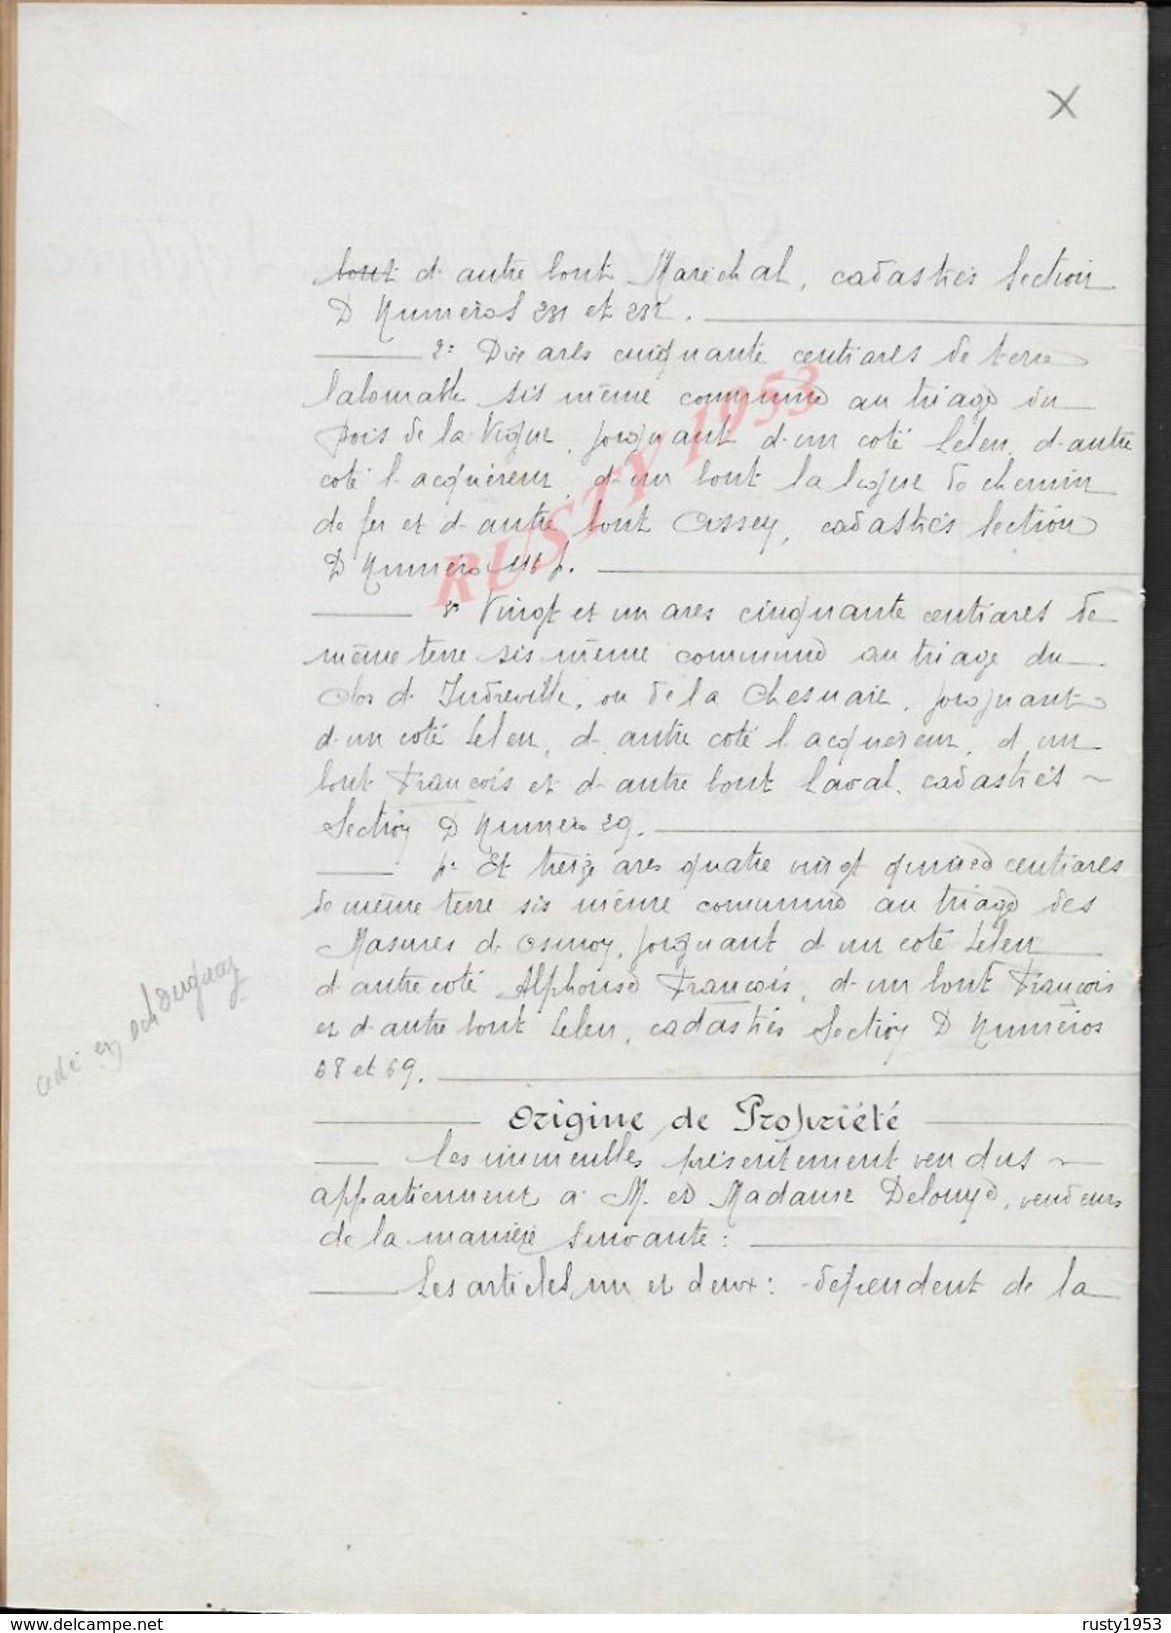 X
bout d'autre bout Maréchal, cadastrés Section
D Numéros 231 et 232.
2° Dix ares cinquante centiares de terre
labourable sis même commune au triage du
Bois de la Vigne, joignant d'un coté Leleu, d'autre
coté l'acquéreur, d'un bout la ligne de chemin
de fer et d'autre bout Cissey, cadastrés Section
D Numéro 116 p.
3° Vingt et un ares cinquante centiares de
même terre sis même commune au triage du
Clos d'Indreville, ou de la Chesnaie, joignant
d'un coté Leleu, d'autre coté l'acquéreur, d'un
bout François et d'autre bout Laval, cadastrés
Section D Numéro 29.
4° Et treize ares quatre vingt quinze centiares
de même terre sis même commune au triage des
Masures d'Osmoy, joignant d'un coté Leleu
d'autre coté Alphonse François, d'un bout François
et d'autre bout Leleu, cadastrés Section D Numéros
68 et 69.
Origine de Propriété
Les immeubles présentement vendus
appartiennent à M. et Madame Delouye, vendeurs
de la manière suivante :
Les articles un et deux : dépendent de la
RUSTY 1953
www.delcampe.net
rusty1953